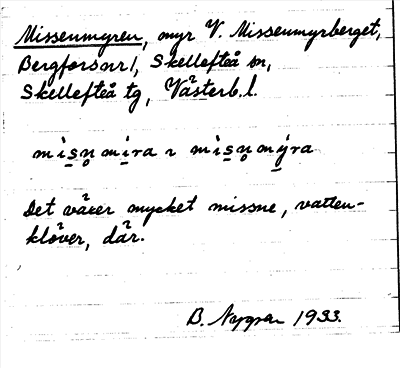 Missenmyren, myr V. Missenmyrberget,
Bergfors nr 1, Skellefteå sn,
Skellefteå tg, Västerb. l.
Det växer mycket missne, vatten-
klöver, där.
B. Nygren 1933.